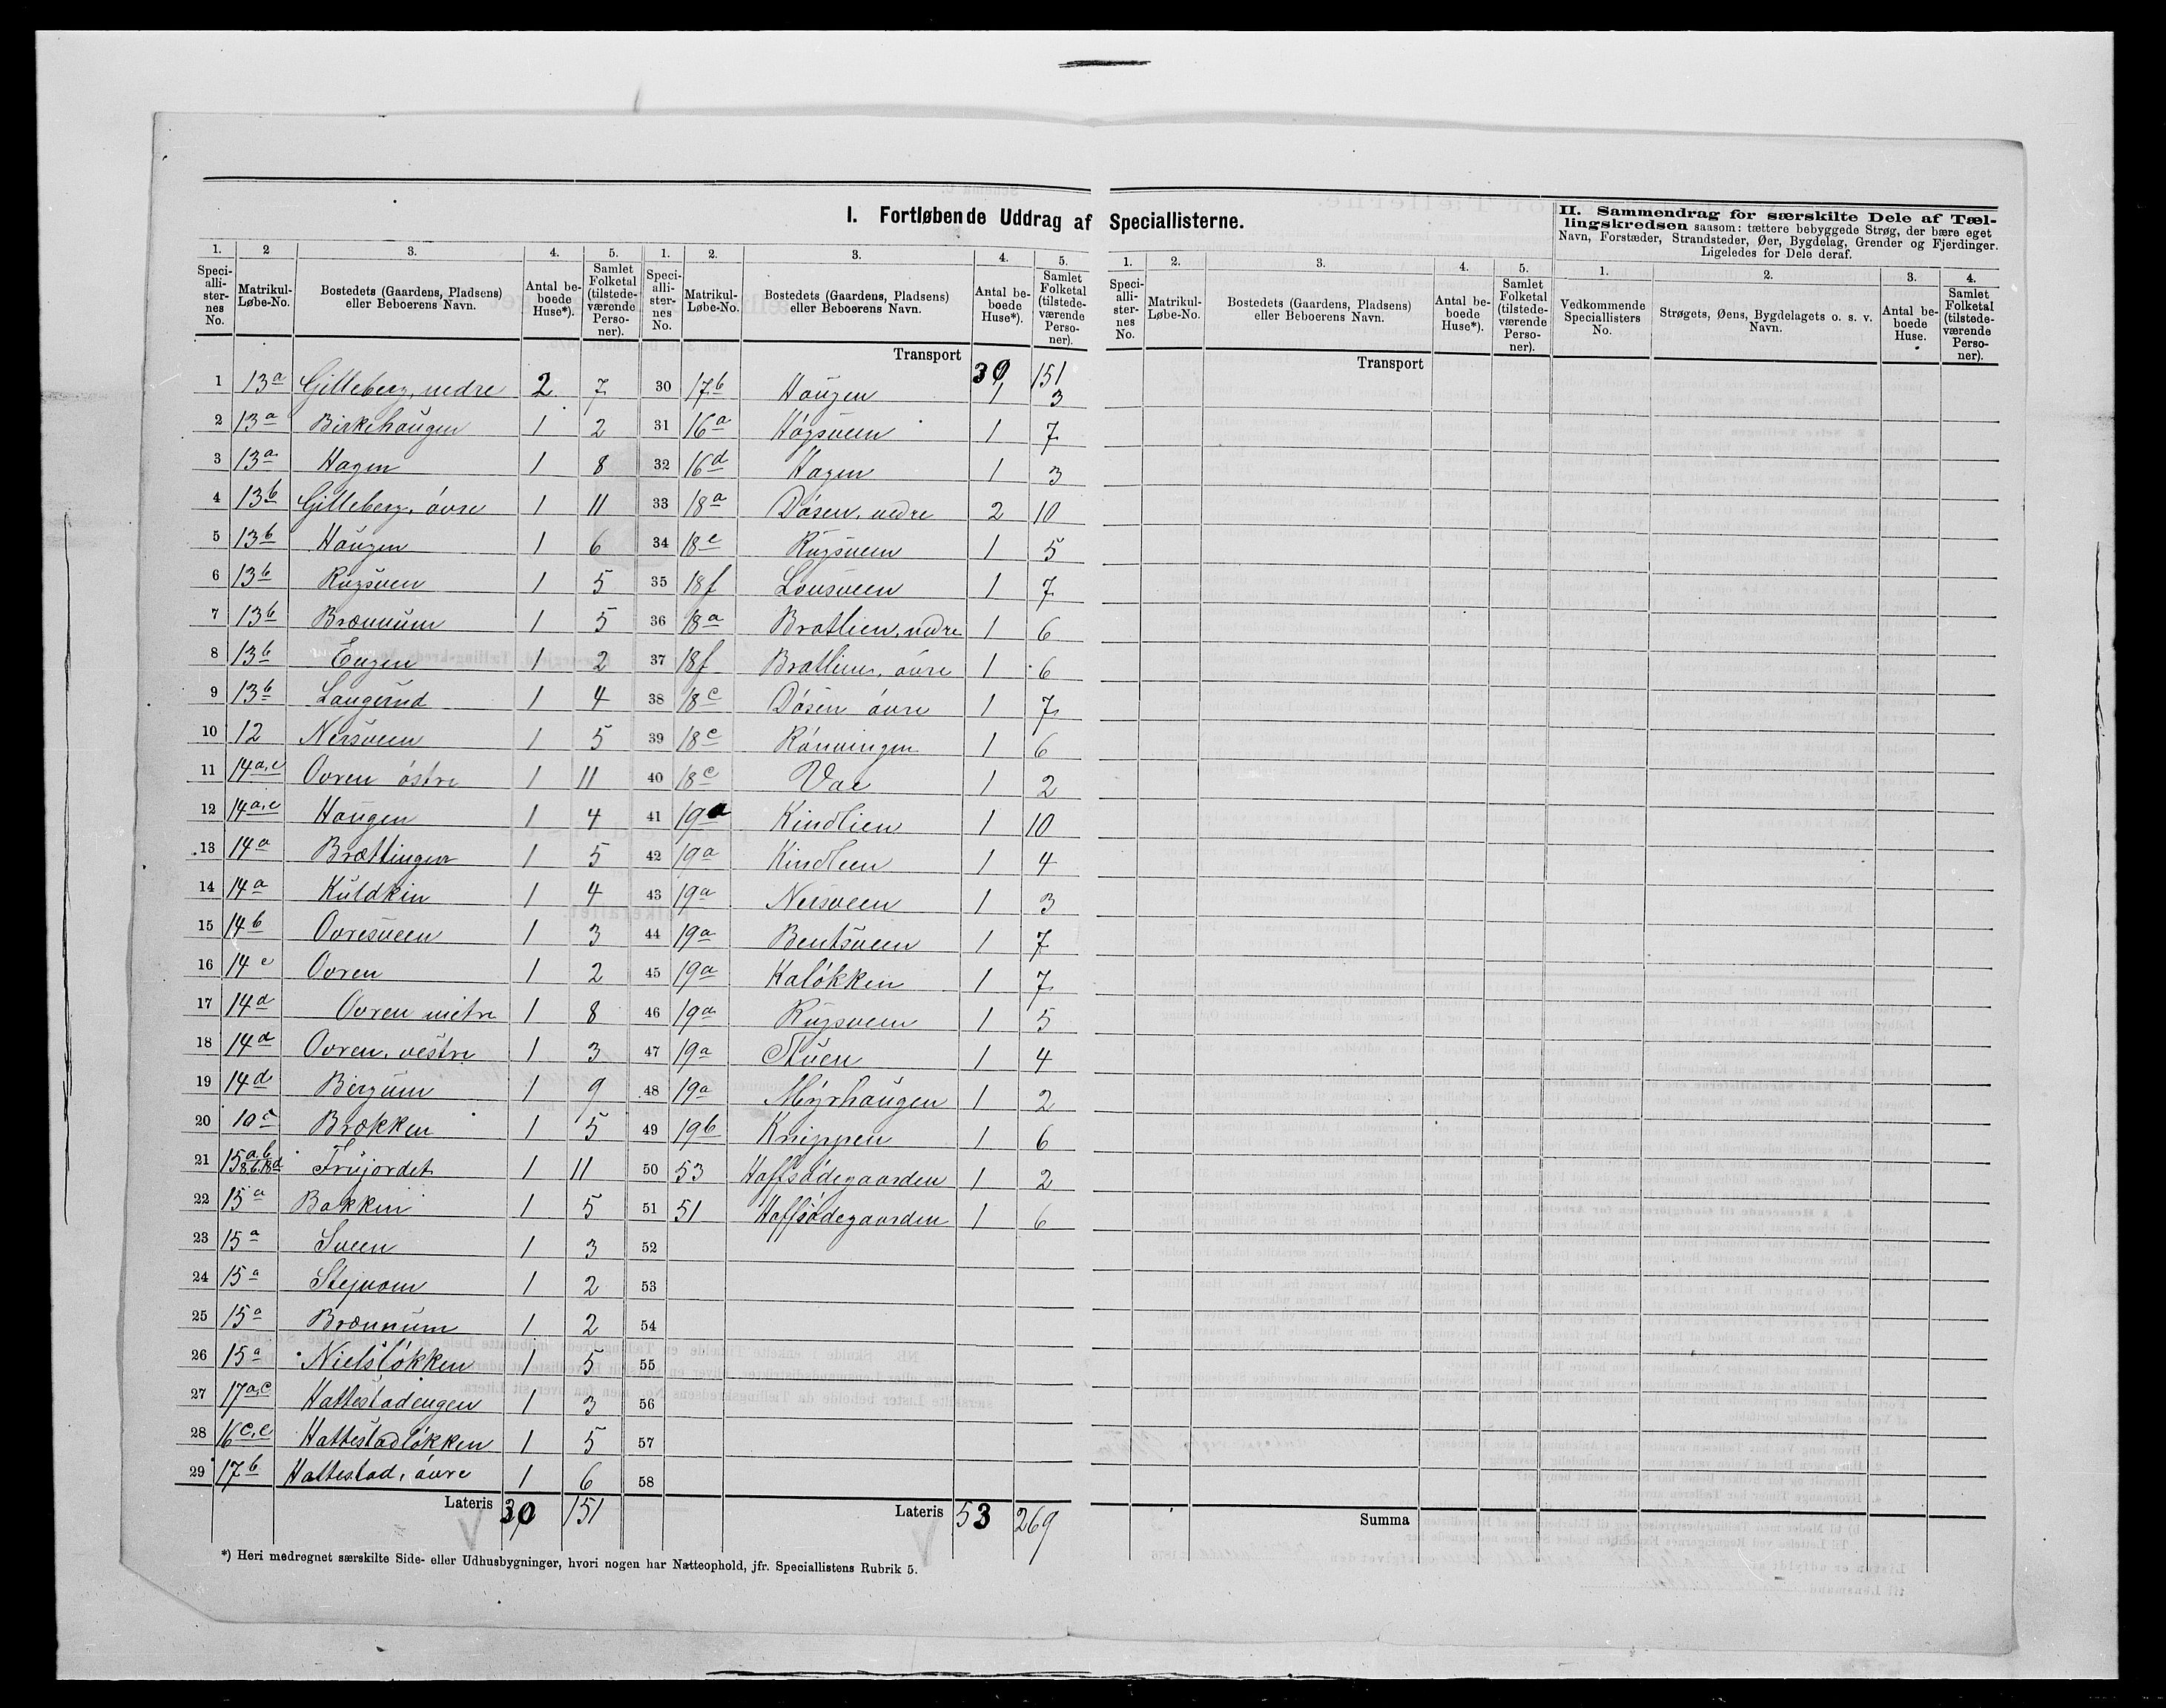 I. Fortløbende Uddrag af Speciallisterne.
II. Sammendrag for særskilte Dele af Tæl-
lingskredsen saasom: tættere bebyggede Strøg, der bære eget
Navn, Forstæder, Strandsteder, Øer, Bygdelag, Grender og Fjerdinger.
Ligeledes for Dele deraf.
1. 2 3. 4. 5.
Speci-alli-ster-nes No. Matrikul-Løbe-No. Bostedets (Gaardens, Pladsens) eller Beboerens Navn. Antal be-boede Huse*). Samlet Folketal (tilstede-værende Perso-ner).
1 13a Gilleberg, nedre 2 7
2 13a Birkehaugen 1 2
3 13a Hagen 1 8
4 13b Gilleberg, övre 1 11
5 13b Haugen 1 6
6 13b Rugsveen 1 5
7 13b Brænnum 1 5
8 13b Engen 1 2
9 13b Langerud 1 4
10 12 Nersveen 1 5
11 14a,c Ovren östre 1 11
12 14a,c Haugen 1 4
13 14a Brættingen 1 5
14 14a Kuldkin 1 4
15 14b Ovresveen 1 3
16 14c Ovren 1 2
17 14d Ovren mitre 1 8
18 14d Ovren, vestre 1 3
19 14d Bergum 1 9
20 10c Brækken 1 5
21 15a,b 18b,18d Frujordet 1 11
22 15a Bakken 1 5
23 15a Sveen 1 3
24 15a 1 2
25 15a Brænnum 1 2
26 15a Nielslökken 1 5
27 17a,c Hattestadengen 1 3
28 16c,e Hattestadlökken 1 5
29 17b Hattestad, övre 1 6
Lateris 30 151
1. 2. 3. 4. 5.
Speci-alli-ster-nes No. Matrikul-Løbe-No. Bostedets (Gaardens, Pladsens) eller Beboerens Navn. Antal be-boede Huse*). Samlet Folketal (tilstede-værende Perso-ner).
Transport 30 151
30 17b Haugen 1 3
31 16a Högsveen 1 7
32 16d Hagen 1 3
33 18a Dösen, nedre 2 10
34 18e Rugsveen 1 5
35 18f Lousveen 1 7
36 18a Bratlien, nedre 1 6
37 18f Bratlien, övre 1 6
38 18c Dösen övre 1 7
39 18c Rönningen 1 6
40 18c 1 2
41 19a Kindlien 1 10
42 19a Kindlien 1 4
43 19a Nersveen 1 3
44 19a Bentsveen 1 7
45 19a Kalökken 1 7
46 19a Rugsveen 1 5
47 19a Stuen 1 4
48 19a Myrhaugen 1 2
49 19b Knippen 1 6
50 53 Hoffsödegaarden 1 2
51 51 Hoffsödegaarden 1 6
52
53
54
55
56
57
58
Lateris 53 269
*) Heri medregnet særskilte Side- eller Udhusbygninger, hvori nogen har Natteophold, jfr. Speciallistens Rubrik 5.
1. 2. 3. 4. 5.
Speci-alli-ster-nes No. Matrikul-Løbe-No. Bostedets (Gaardens, Pladsens) eller Beboerens Navn. Antal be-boede Huse*). Samlet Folketal (tilstede-værende Perso-ner).
Transport
Summa
1. 2. 3. 4.
Vedkommende Speciallisters No. Strøgets, Øens, Bygdelagets o. s. v. Navn. Antal be-boede Huse. Samlet Folketal (tilstede-værende Perso-ner).